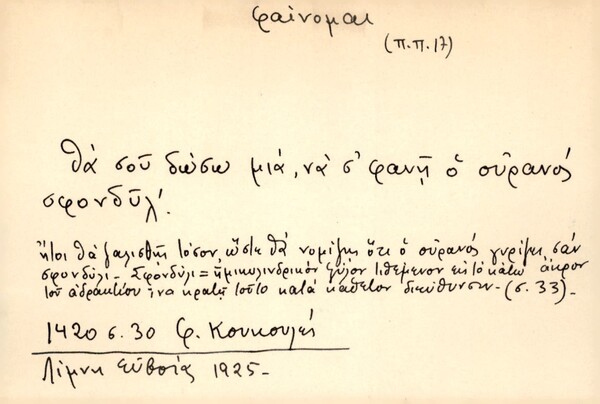 φαίνομαι
(π.π. 17)
Θά σοῦ δώσω μιά, νὰ σ' φανῇ ὁ οὐρανός
σφονδῦλ'.
ἤτοι θὰ ζαλισθῇς τόσον, ὥστε θὰ νομίζῃς ὅτι ὁ οὐρανὸς γυρίζει σάν
σφονδύλι - Σφονδύλι = ἡμικυλινδρικὸν ξύλον τιθέμενον εἰς τὸ κάτω ἄκρον
τοῦ ἀδρακτίου ἵνα κρατῇ τοῦτο κατὰ κάθετον διεύθυνσιν - (σ. 33) -
1420 σ. 30 Φ. Κουκουλές
Λίμνη Εὐβοίας 1925 -